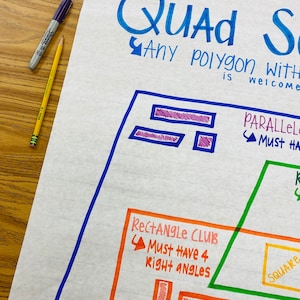 QUAD S
ANY POLYGON WITH
IS WELCOME
PARALLEL
MUST HA
RECTANGLE CLUB
MUST HAVE 4
RIGHT ANGLES
SQUARE